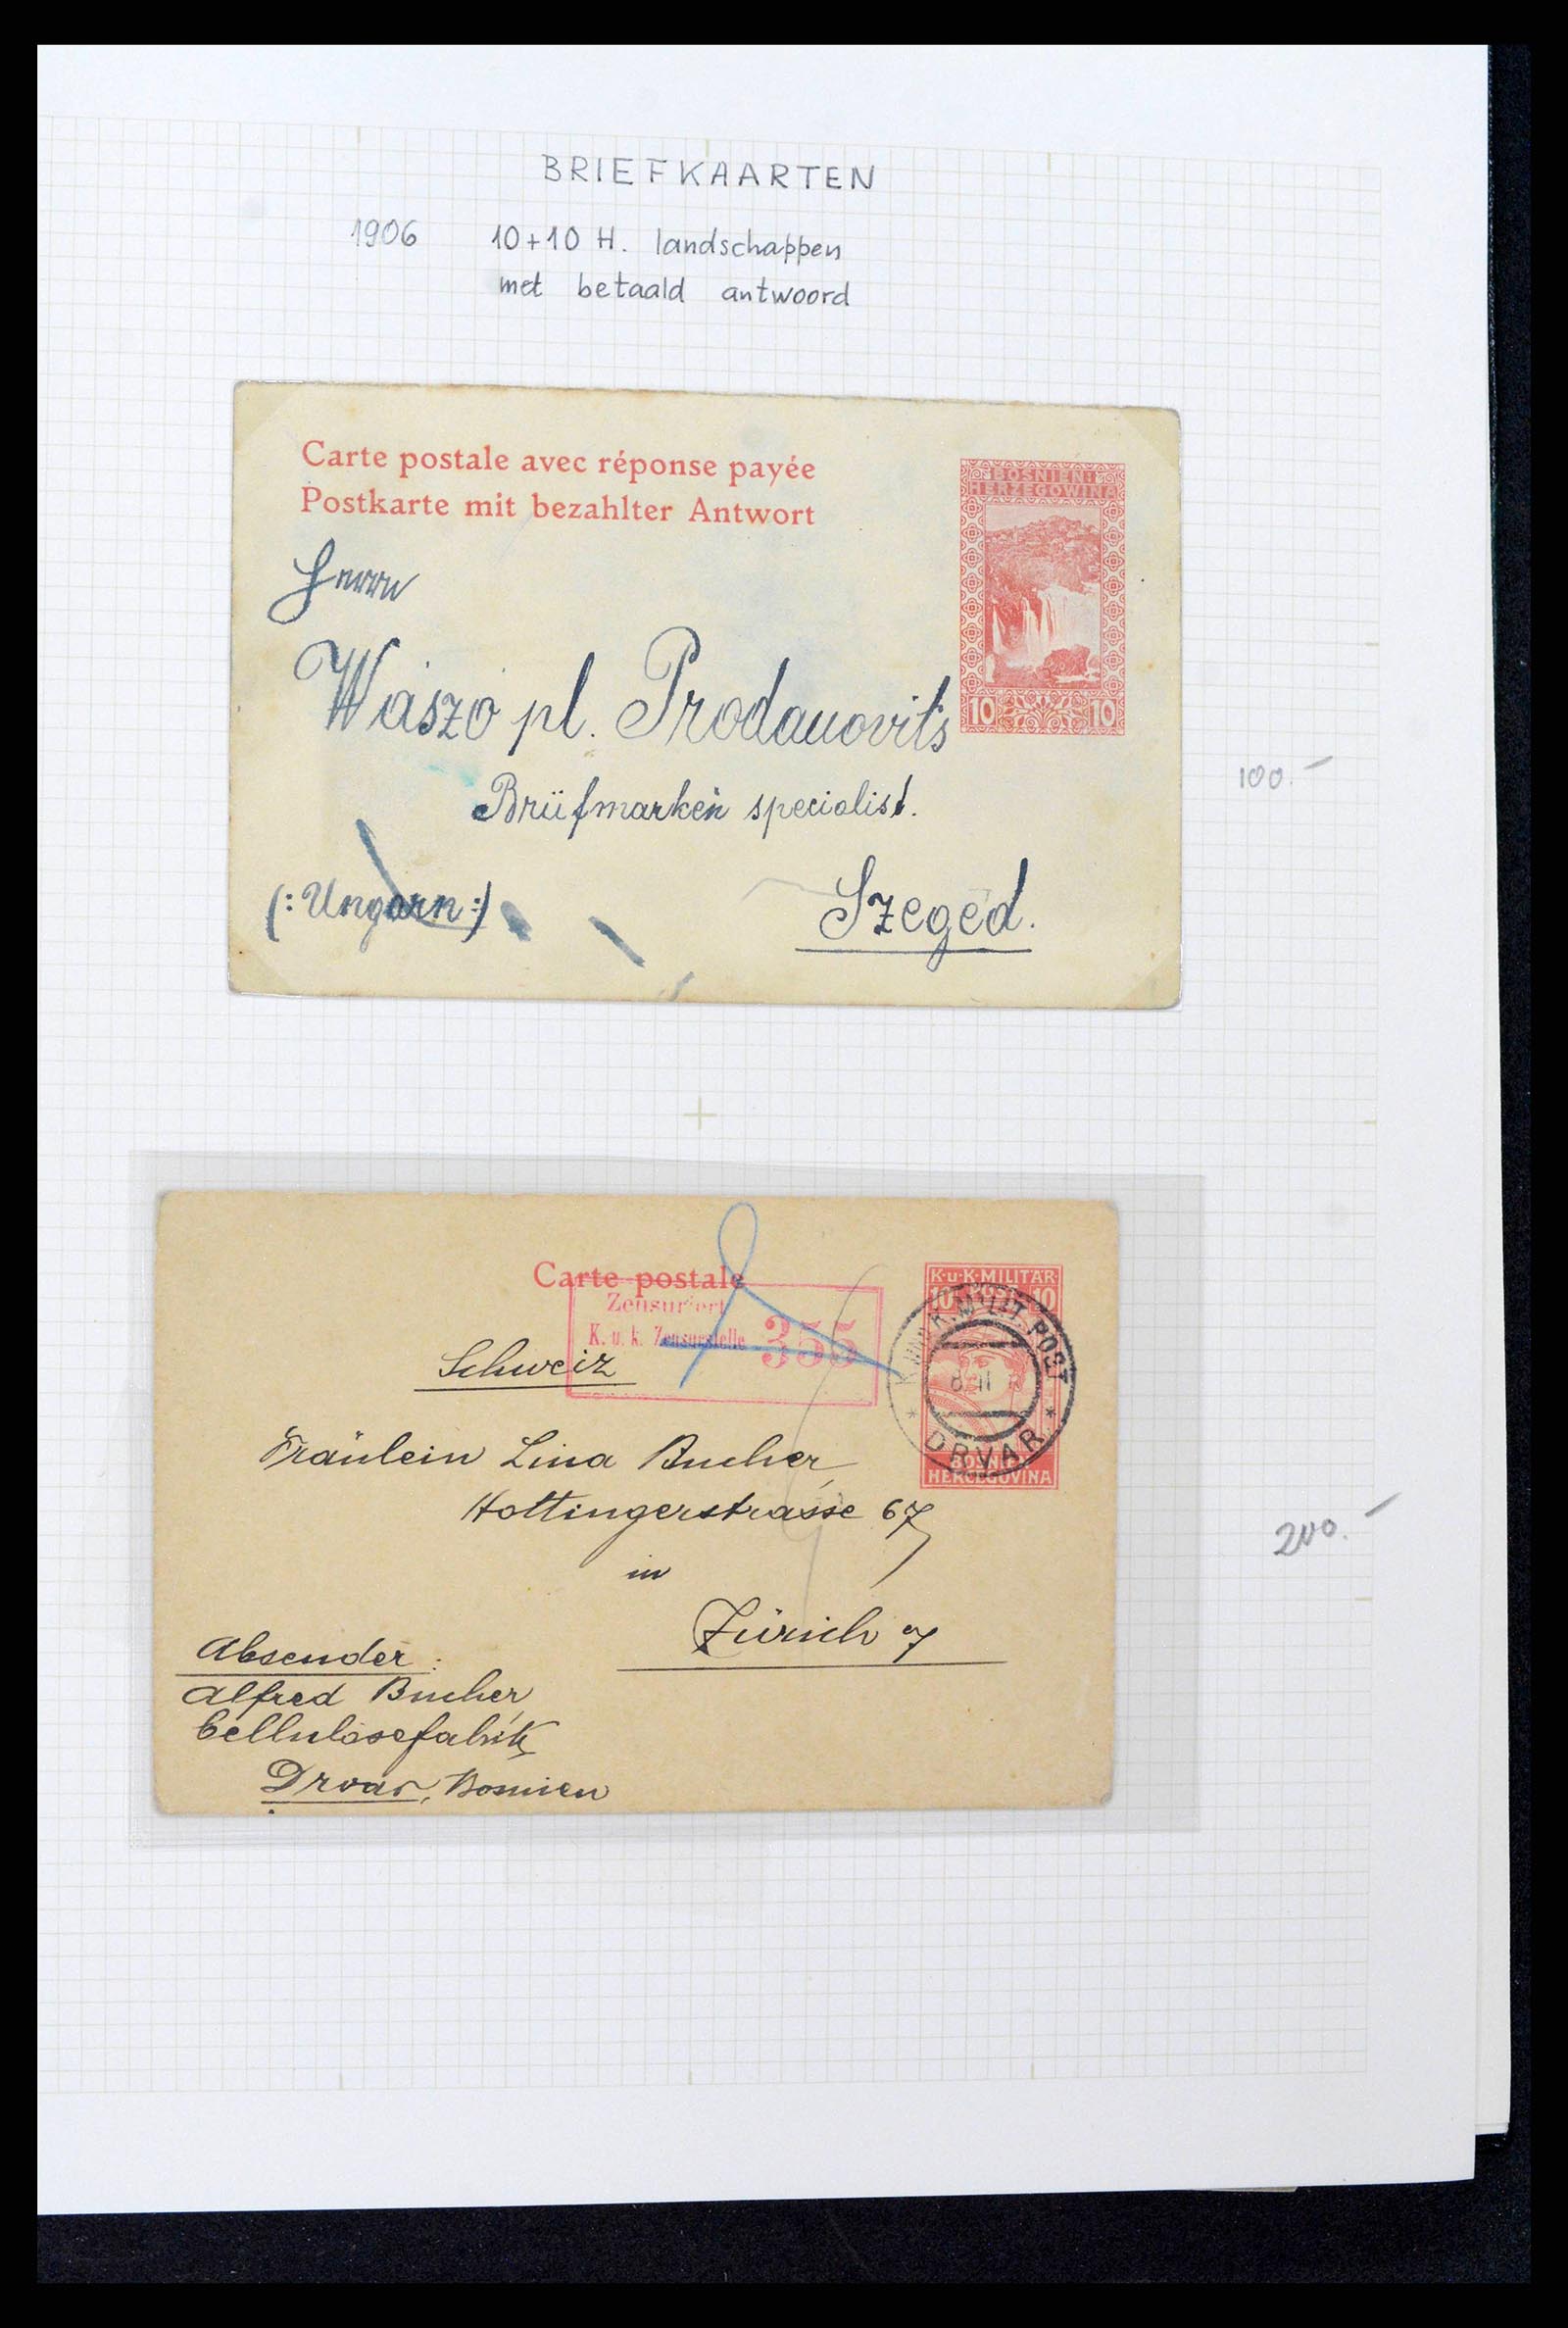 BRIEFKAARTEN
1906 10+10 H. landschappen
met betaald antwoord
Carte postale avec réponse payée
Postkarte mit bezahlter Antwort
BOSNIEN-
HERZEGOWINA
10 10
Herrn
Waszo pl. Prodanovits
Brüfmarken specialist.
(:Ungarn:)
Szeged.
100.-
Carte postale
K.u.K. MILITÄR
10 POST 10
Zensuriert
K. u. k. Zensurstelle 355
MILIT. POST
8 II
DRVAR
BOSNIEN
HERCEGOVINA
Schweiz
Fräulein Lina Bucher
Hottingerstrasse 67
in
Zürich 7
Absender:
Alfred Bucher
Cellulosefabrik
Drvar, Bosnien
200.-